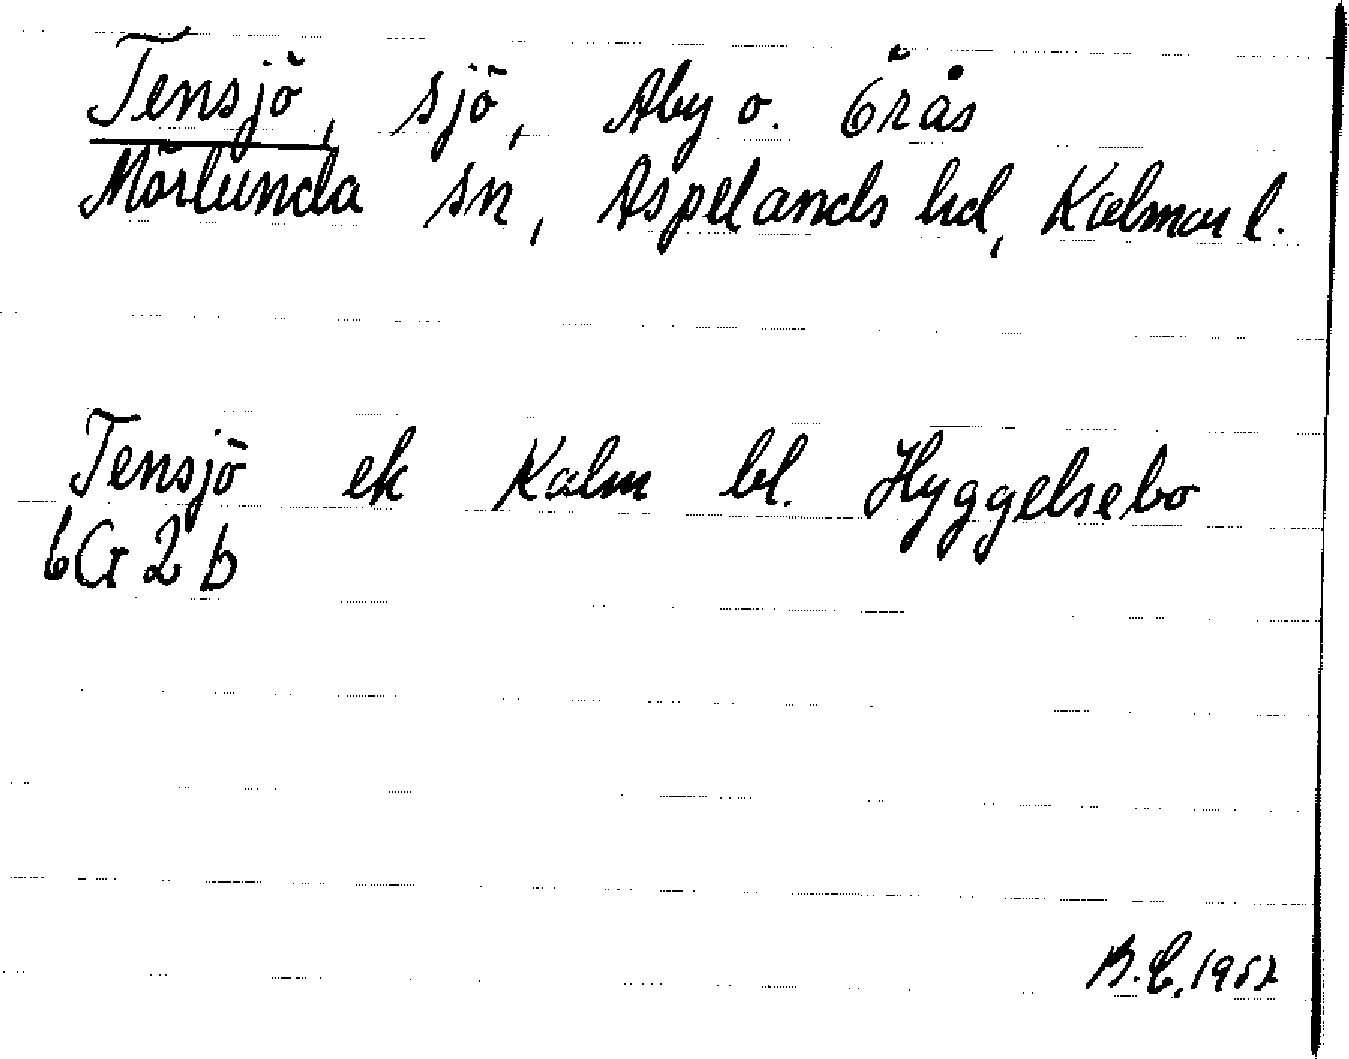 Tensjö, sjö, Åby o. Örås
Mörlunda sn, Aspelands hd, Kalmar l.
Tensjö ek Kalm bl. Hyggelsebo
6G2b